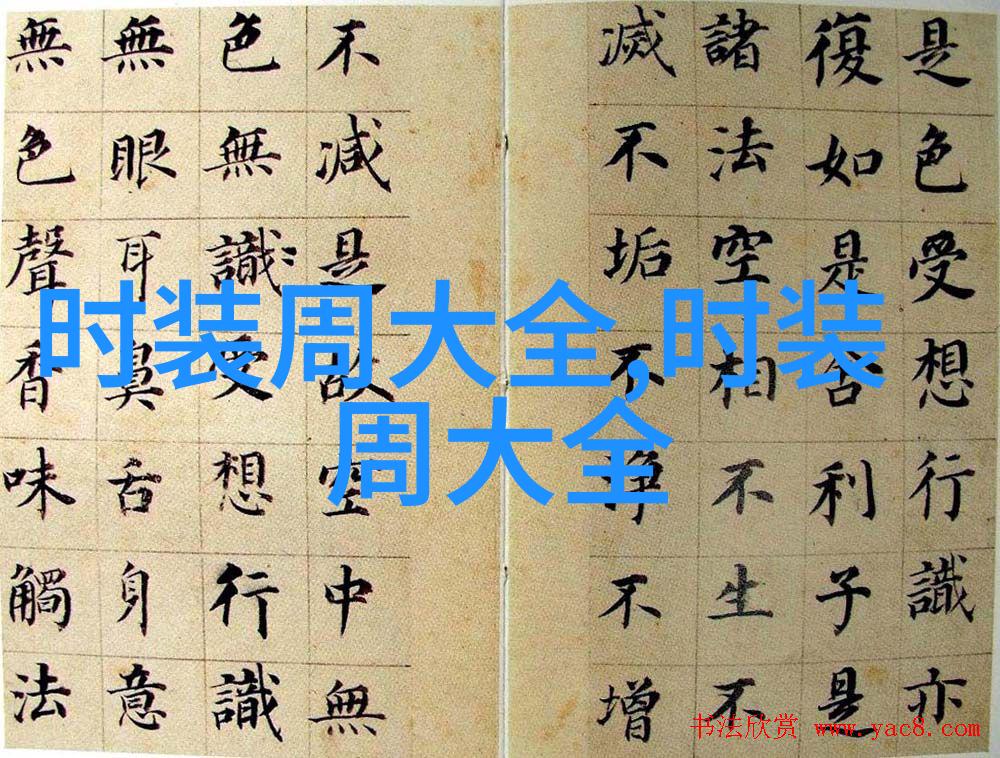 是色受想行識亦
復如是舍利子是
諸法空相不生不
滅不垢不净不增
不減是故空中無
色無識受想行識
無眼耳鼻舌身意
無色聲香味觸法
时装周大全,时装
周大全
书法欣赏 www.yac8.com